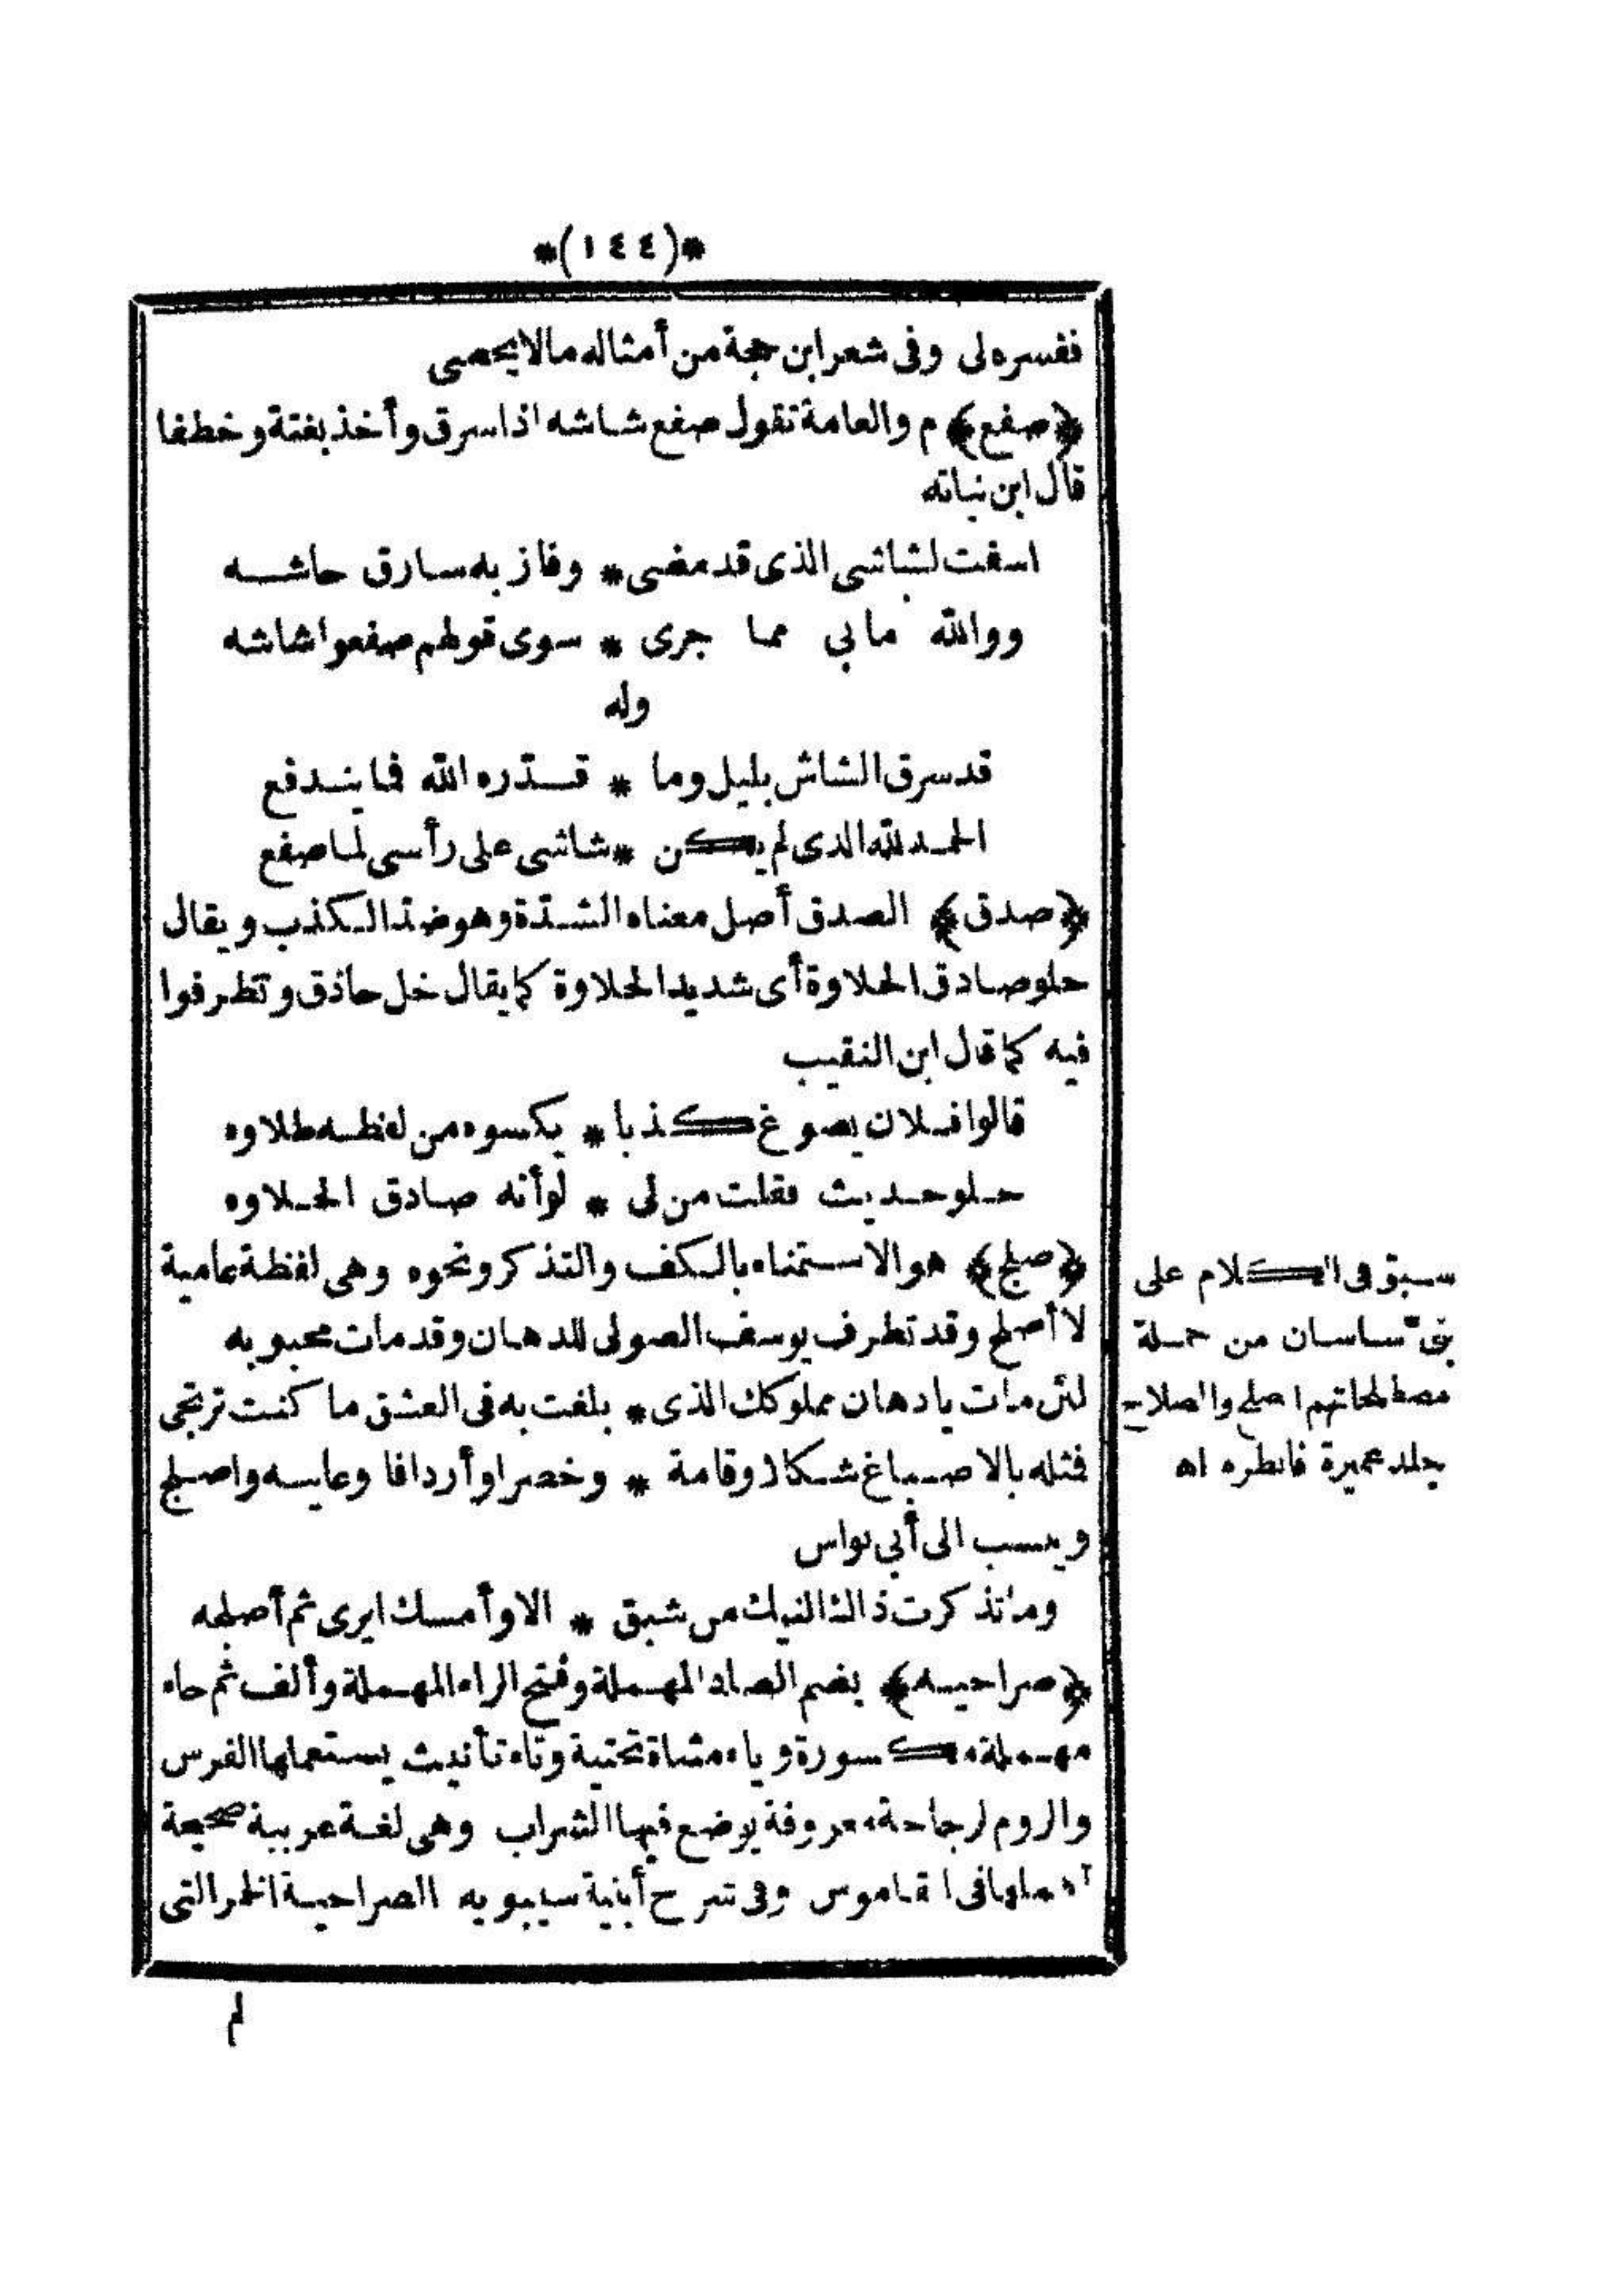 *(١٤٤)*
ففسره لى وفى شعر ابن حجة من أمثاله مالا يحصى
﴿صفع﴾ م والعامة تقول صفع شاشه اذا سرق وأخذ بغتة وخطفا
قال ابن نباته
اسفت لشاشى الذى قد مضى * وفاز به سارق حاشه
ووالله مابى مما جرى * سوى قولهم صفعوا شاشه
وله
قد سرق الشاش بليل وما * قدّره الله فما يندفع
الحمد لله الذى لم يكن * شاشى على رأسى لما صفع
﴿صدق﴾ الصدق أصل معناه الشدّة وهو ضدّ الكذب ويقال
حلو صادق الحلاوة أى شديد الحلاوة كما يقال خل حاذق وتظرفوا
فيه كما قال ابن النقيب
قالوا فلان يصوغ كذبا * يكسوه من لفظه طلاوه
حلو حديث فقلت من لى * لو أنه صادق الحلاوه
﴿صلج﴾ هو الاستمناء بالكف والتذكر ونحوه وهى لفظة عامية
لا أصلج وقد تظرف يوسف الصولى للدهان وقد مات محبوبه
لئن مات يادهان مملوكك الذى * بلغت به فى العشق ما كنت ترتجى
فثله بالاصباغ شكلا وقامة * وخصرا وأردافا وعايسه واصلج
وينسب الى أبى نواس
وما تذكرت ذاك النيك من شبق * الا وأمسك ايرى ثم أصلجه
﴿صراحيه﴾ بضم الصاد المهملة وفتح الراء المهملة وألف ثم حاء
مهملة مكسورة وياء مثناة تحتية وتاء تأنيث يستعملها الفرس
والروم لزجاجة معروفة يوضع فيها الشراب وهى لغة عربية صحيحة
أهملها فى القاموس وفى شرح أبنية سيبويه الصراحية الخمر التى
لم
سبق فى الكلام على
بنى ساسان من جملة
مصطلحاتهم اصلج والصلاج
جلد عميرة فانظره اه